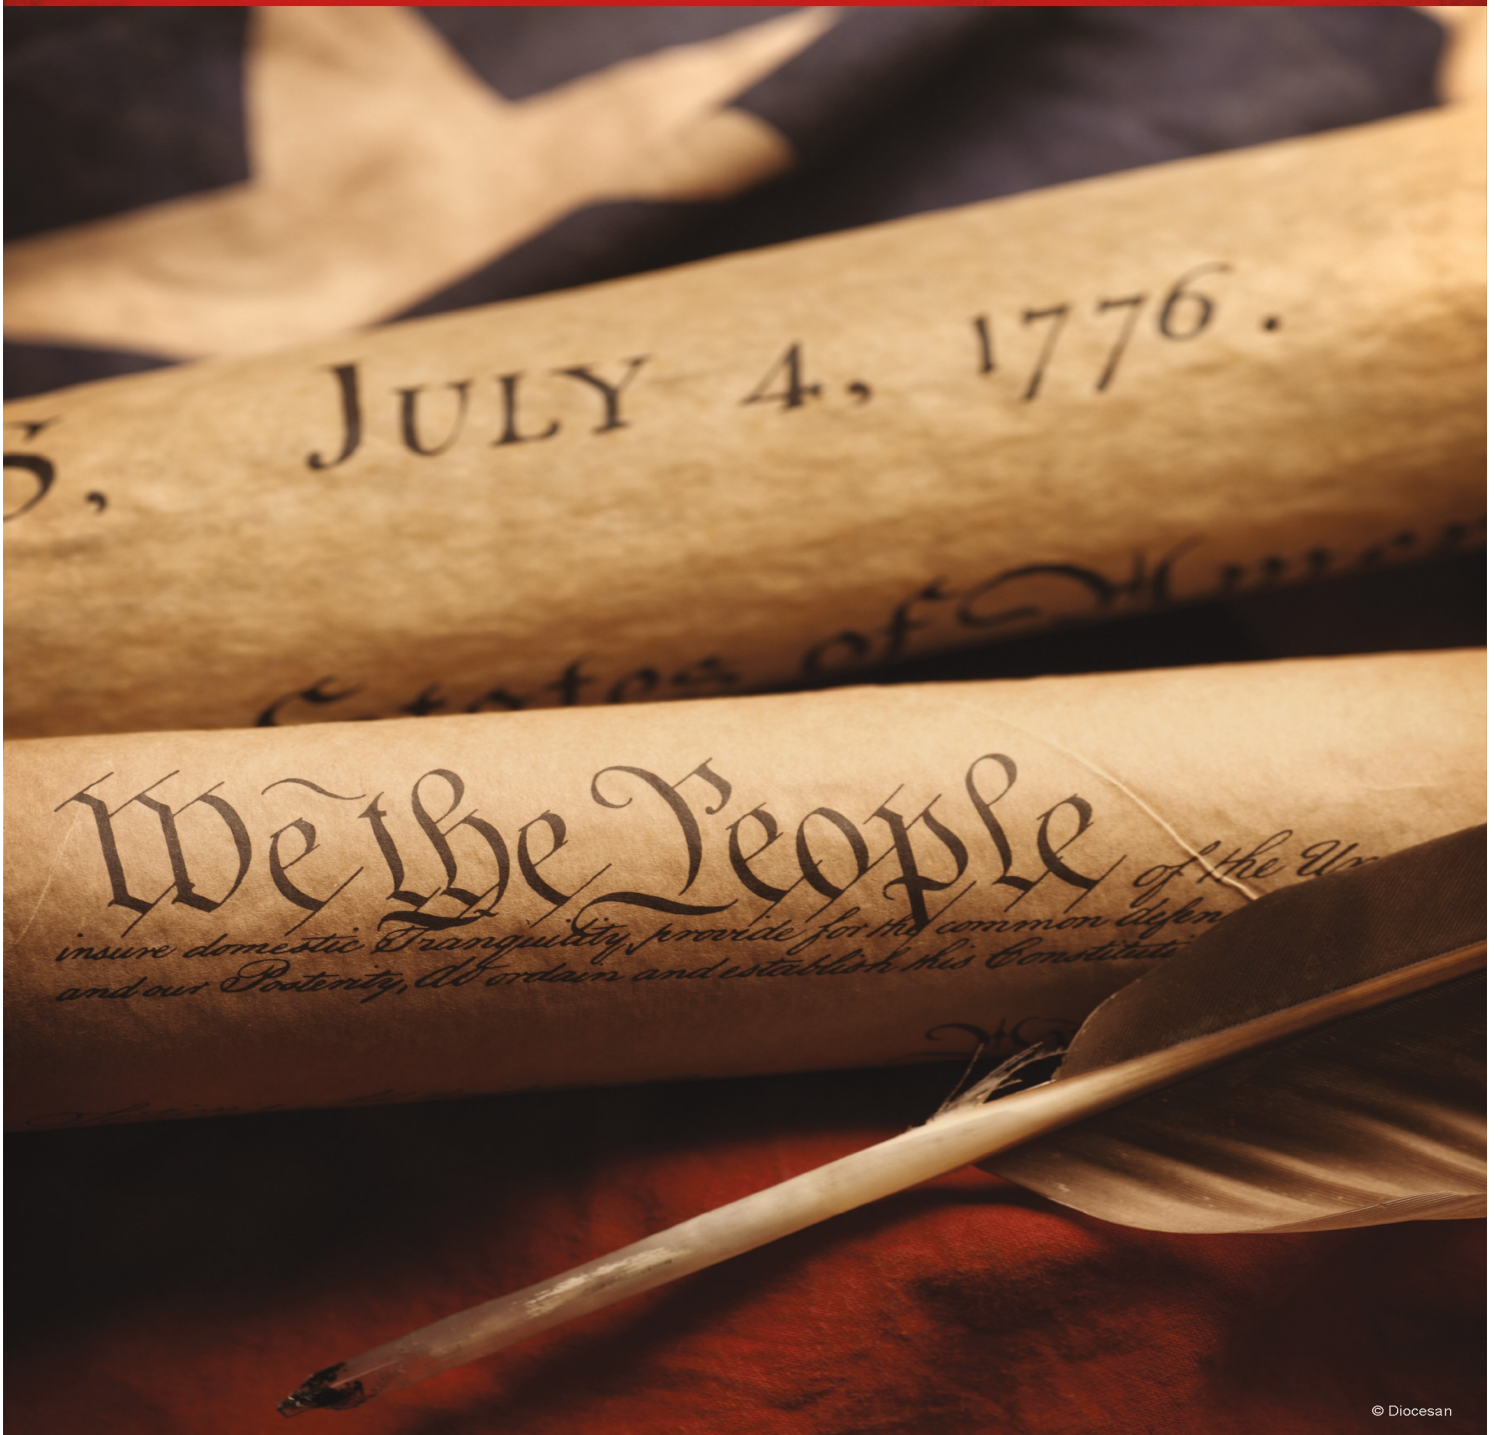 S, JULY 4, 1776.
States of Amer
We the People of the Un
insure domestic Tranquility, provide for the common defen
and our Posterity, do ordain and establish this Constituti
© Diocesan